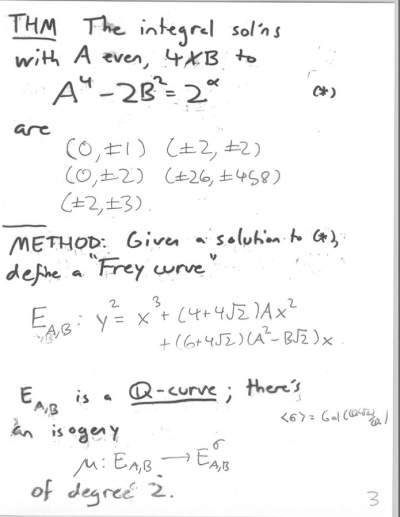 THM The integral sol'ns
with A even, 4∤B to
A⁴ - 2B² = 2^α (*)
are
(0, ±1) (±2, ±2)
(0, ±2) (±26, ±478)
(±2, ±3).
METHOD: Given a solution to (*),
define a "Frey curve"
E_{A,B}: y² = x³ + (4+4√2)Ax²
+ (6+4√2)(A² - B√2)x.
E_{A,B} is a Q-curve; there's
an isogeny
<σ> = Gal(Q(√2)/Q)
μ: E_{A,B} → E^σ_{A,B}
of degree 2.
3